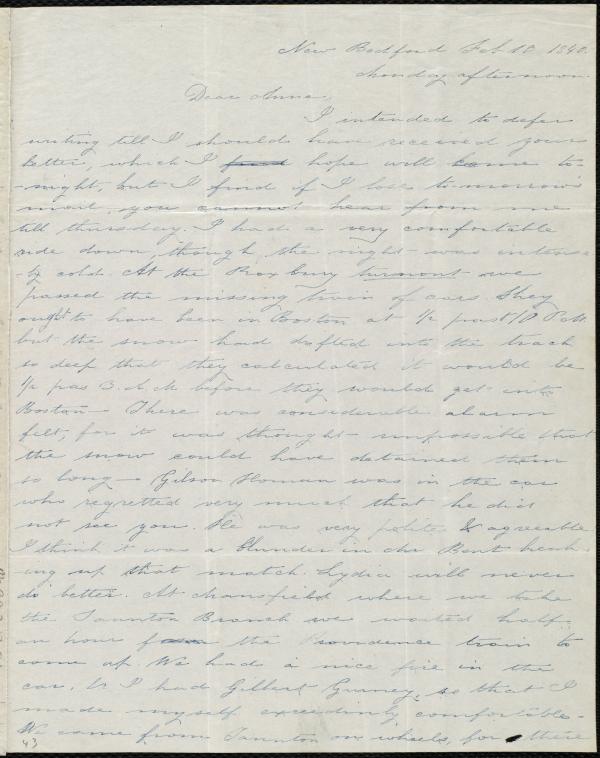 New Bedford Feb. 18 1840.
Monday afternoon.
Dear Anne,
I intended to defer
writing till I should have received your
letter, which I hope will come to-
-night, but I find if I lose to-morrow's
mail, you cannot hear from me
till thursday. I had a very comfortable
ride down, though the night was intense
-ly cold. At the Roxbury turnout we
passed the missing train of cars. They
ought to have been in Boston at 1/2 past 10 P.M.
but the snow had drifted into the track
so deep that they calculated it would be
1/2 pas 3. A.M before they would get into
Boston— There was considerable alarm
felt, for it was thought impossible that
the snow could have detained them
so long— Gilson Homan was in the car
who regretted very much that he did
not see you. He was very polite & agreeable
I think it was a blunder in the Bent break
ing up that match. Lydia will never
do better. At Mansfield where we take
the Taunton Branch we waited half
an hour the Providence train to
come up. We had a nice fire in the
car, & I had Gilbert Gurney, so that I
made myself exceedingly comfortable—
We came from Taunton on wheels, for there
43